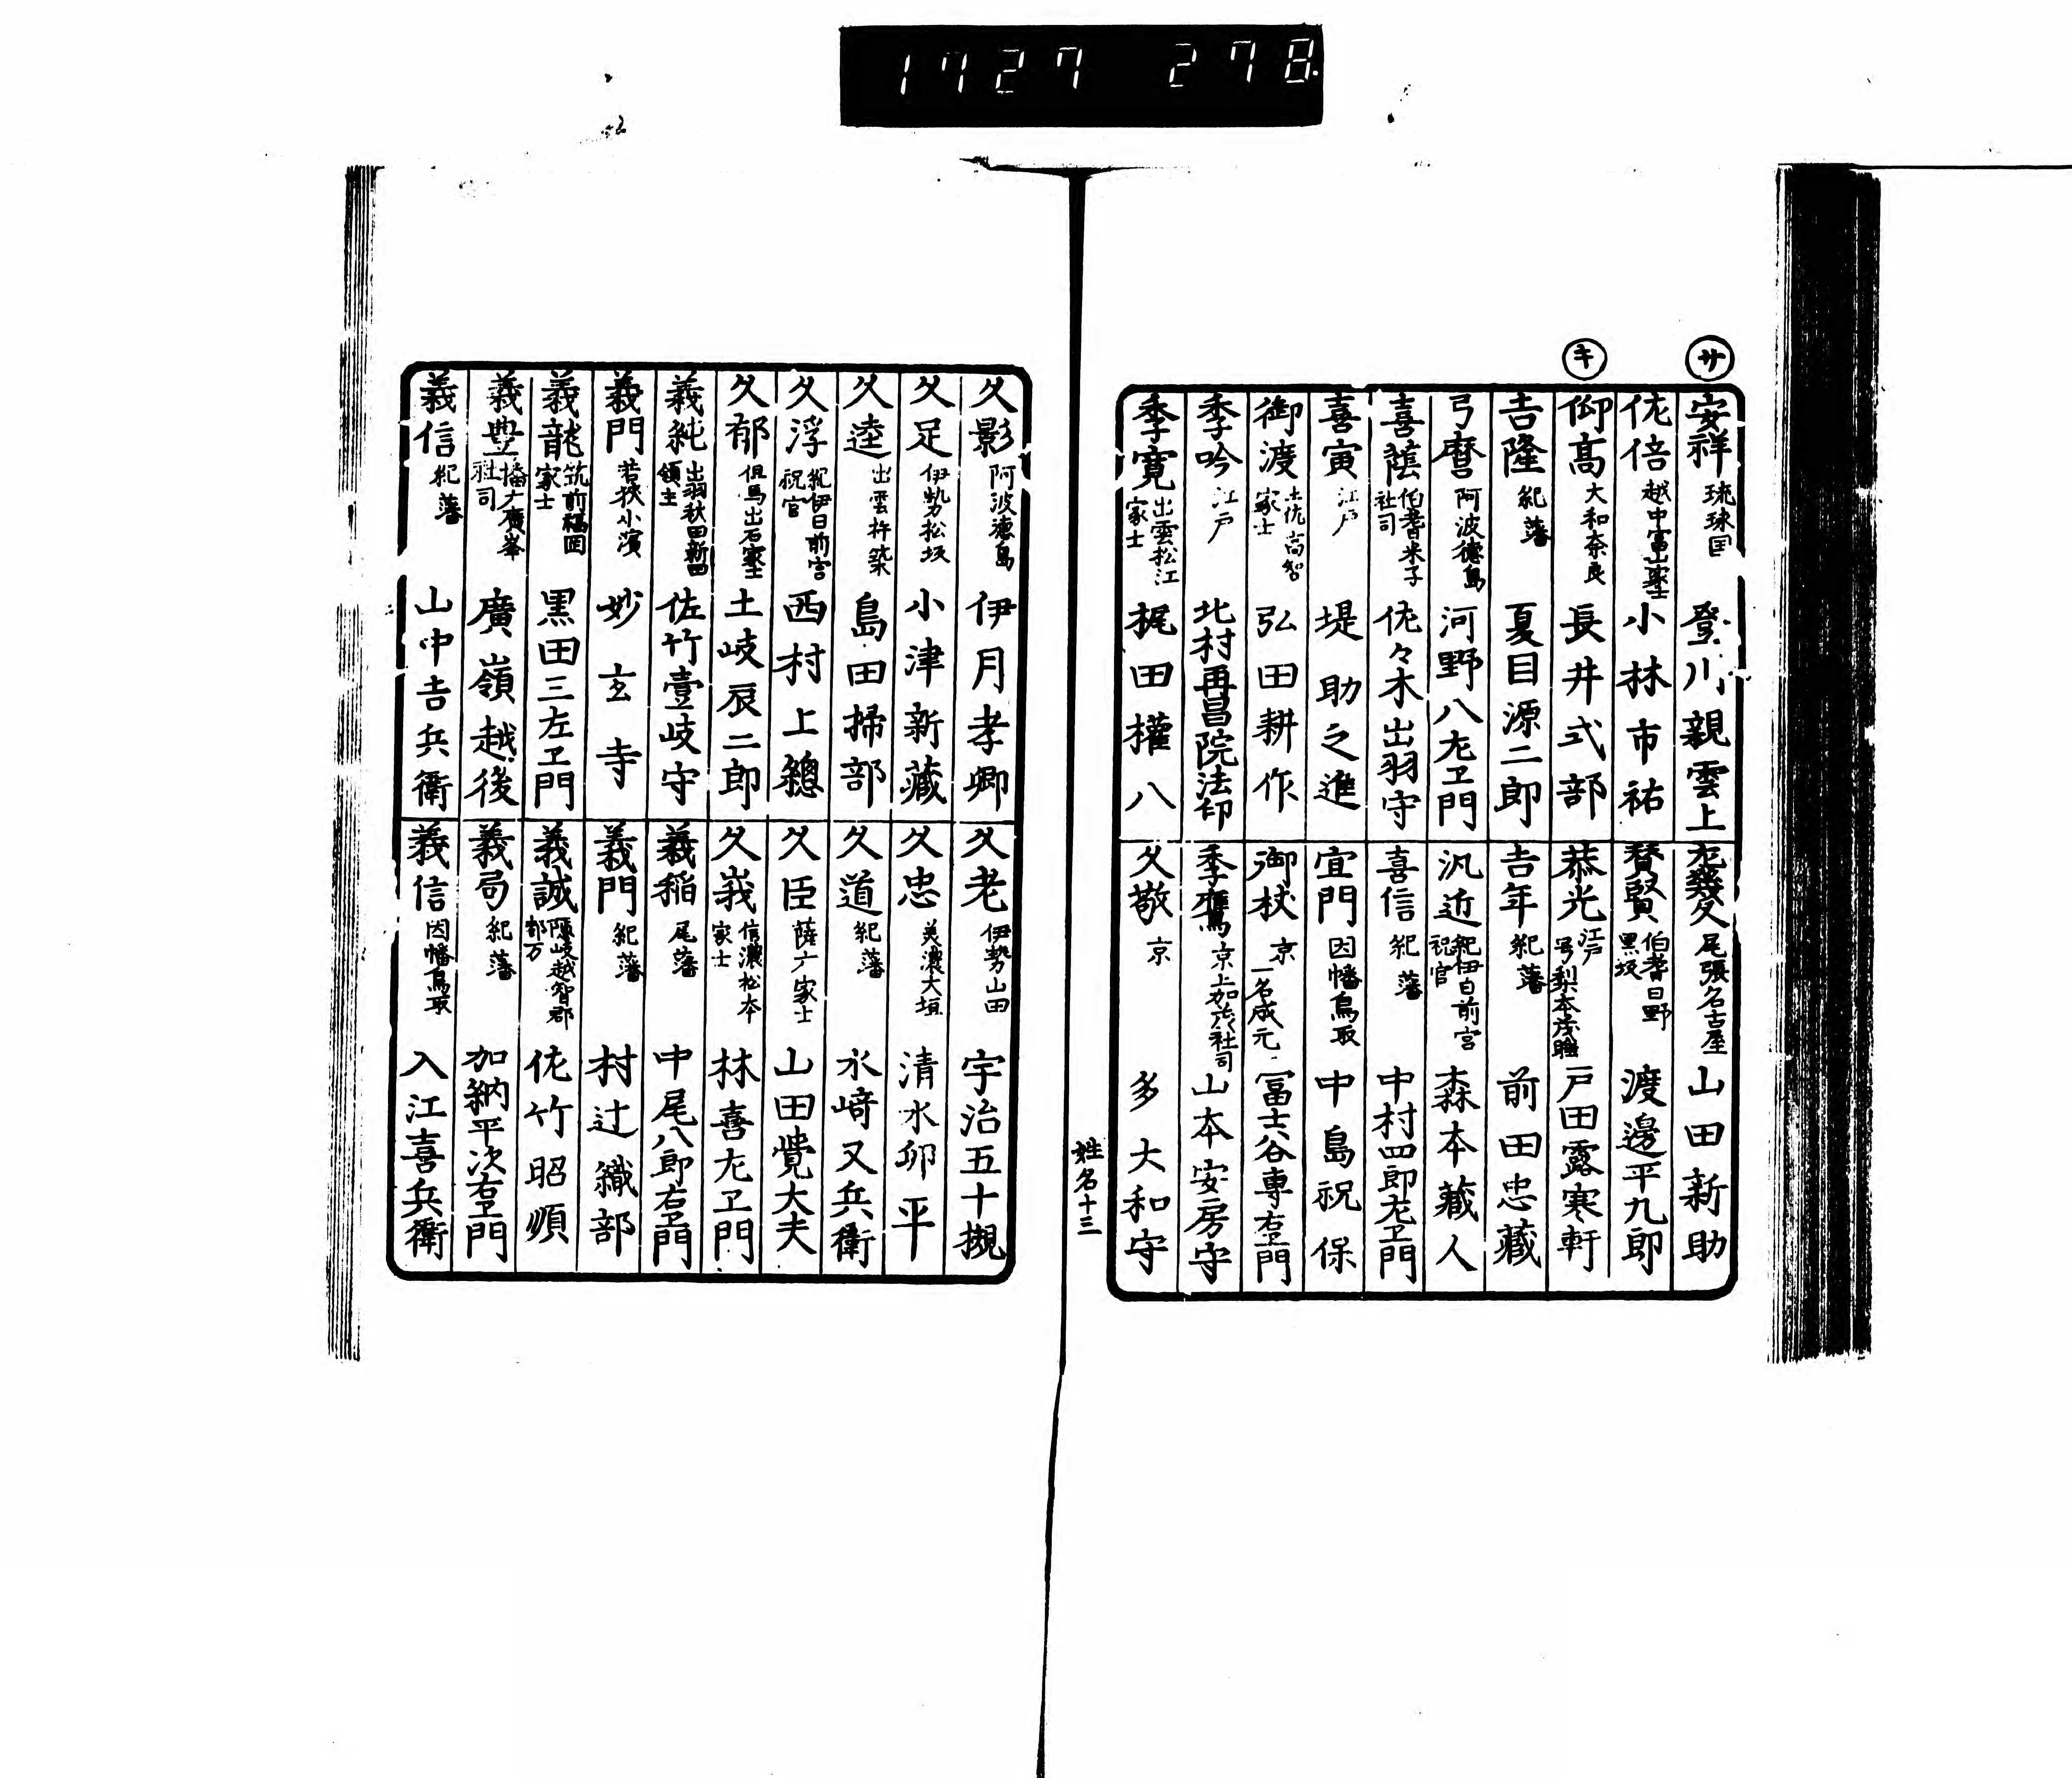 1727 278
サ
安祥 琉球国 登川親雲上
佐倍 越中富山家士 小林市祐
キ
仰高 大和奈良 長井式部
吉隆 紀藩 夏目源二郎
弓麿 阿波徳島 河野八左ヱ門
喜蔭 伯耆米子社司 佐々木出羽守
喜寅 江戸 堤助之進
御渡 土佐高智家士 弘田耕作
季吟 江戸 北村再昌院法印
季寛 出雲松江家士 梶田權八
尾張名古屋 山田新助
賛賢 伯耆日野黒坂 渡邊平九郎
恭光 江戸 号梨本茂睡 戸田露寒軒
吉年 紀藩 前田忠藏
汎近 紀伊日前宮祝官 森本藏人
喜信 紀藩 中村四郎左ヱ門
宜門 因幡鳥取 中島祝保
御杖 京 一名成元 冨士谷専右ヱ門
季鷹 京上加茂社司 山本安房守
久敬 京 多大和守
姓名十三
久影 阿波徳島 伊月孝卿
久足 伊勢松坂 小津新藏
久逵 出雲杵築 島田掃部
久浮 紀伊日前宮祝官 西村上總
久郁 但馬出石家士 土岐辰二郎
義純 出羽秋田新田領主 佐竹壹岐守
義門 若狭小濱 妙玄寺
義龍 筑前福岡家士 黒田三左ヱ門
義豊 播广廣峯社司 廣嶺越後
義信 紀藩 山中吉兵衛
久老 伊勢山田 宇治五十槻
久忠 美濃大垣 清水卯平
久道 紀藩 水﨑又兵衛
久臣 薩广家士 山田覚大夫
久峩 信濃松本家士 林喜左ヱ門
義稲 尾藩 中尾八郎右ヱ門
義門 紀藩 村辻織部
義誠 隠岐越智郡都万 佐竹昭順
義局 紀藩 加納平次右ヱ門
義信 因幡鳥取 入江喜兵衛